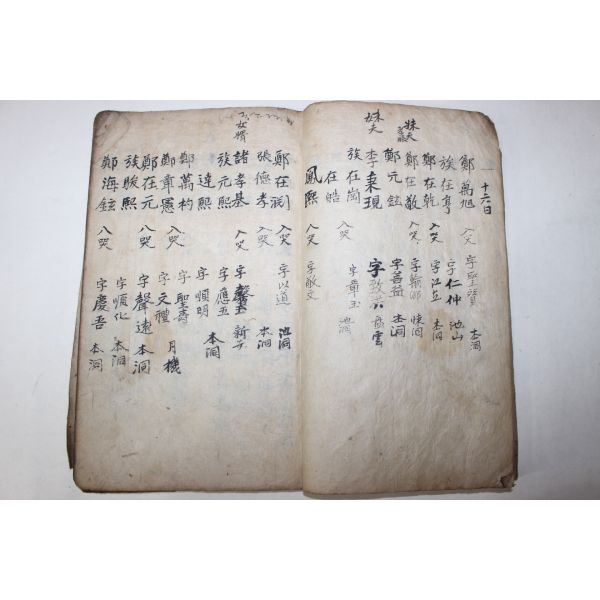 十六日
鄭萬旭 入哭 字聖賓 本洞
族在亨 字仁仲 池山
鄭在乾 入哭 字江立 本洞
妹夫 鄭在敬 入哭 字
鄭元鉉 字善益 本洞
妹夫 李秉現 字 雲
族在崗 字章玉 池洞
在皓 入哭
鳳熙 入哭 字敬文
鄭在 入哭 字以道 池洞
張德孝 入哭 本洞
女婿 諸孝基 入哭 字 新
族元熙 字應五 本洞
達熙 字順明
鄭萬杓 字聖壽 月機
鄭章憲 入哭 字文禮
鄭在元 入哭 字聲遠 本洞
族駿熙 字順化 本洞
鄭海鉉 入哭 字慶吾 本洞